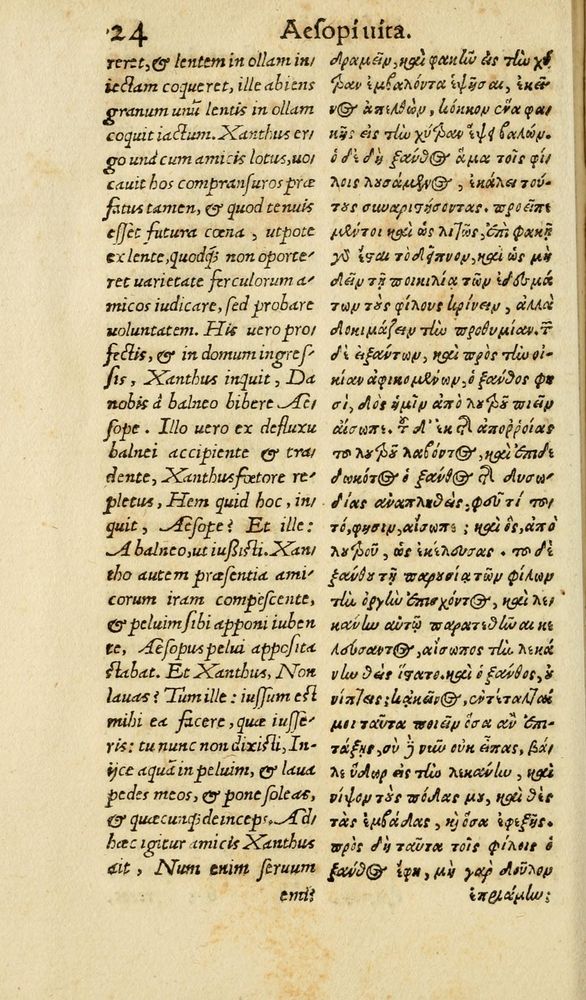 24 Aesopi uita.
reret, & lentem in ollam in/
iectam coqueret, ille abiens
granum unū lentis in ollam
coquit iactum. Xanthus er/
go unà cum amicis lotus, uo/
cauit hos compransuros præ
fatus tamen, & quod tenuis
esset futura cœna, utpote
ex lente, quodq́; non oporte/
ret uarietate ferculorum a/
micos iudicare, sed probare
uoluntatem. His uero pro/
fectis, & in domum ingres/
sis, Xanthus inquit, Da
nobis à balneo bibere Ae/
sope. Illo uero ex defluxu
balnei accipiente & tra/
dente, Xanthus fœtore re/
pletus, Hem quid hoc, in/
quit, Aesope? Et ille:
A balneo, ut iussisti. Xan/
tho autem præsentia ami/
corum iram compescente,
& peluim sibi apponi iuben
te, Aesopus pelui apposita
stabat. Et Xanthus, Non
lauas? Tum ille: iussum est
mihi ea facere, quæ iusse/
ris: tu nunc non dixisti, In/
ijce aquā in peluim, & laua
pedes meos, & pone soleas,
& quæcunq; deinceps. Ad/
hæc igitur amicis Xanthus
ait, Num enim seruum
emi?
δραμεῖν, καὶ φακὴν εἰς τὴν χύ
τραν ἐμβαλόντα ἑψῆσαι, ἐκεῖ/
νος ἀπελθὼν, κόκκον ἕνα φα/
κῆς εἰς τὴν χύτραν ἕψει βαλών.
ὁ δὲ δὴ ξάνθος ἅμα τοῖς φί/
λοις λουσάμενος, ἐκάλει τού/
τους συναριστήσοντας. προεῖπε
μέντοι καὶ ὡς λιτῶς, ἐπὶ φακῇ
γὰρ ἔσται τὸ δεῖπνον, καὶ ὡς μὴ
δεῖν τῇ ποικιλίᾳ τῶν ἐδεσμά
των τοὺς φίλους κρίνειν, ἀλλὰ
δοκιμάζειν τὴν προθυμίαν. τῶν
δὲ εἰξάντων, καὶ πρὸς τὴν οἰ/
κίαν ἀφικομένων, ὁ ξάνθος φη
σὶ, δὸς ἡμῖν ἀπὸ λουτροῦ πιεῖν
αἴσωπε. τοῦ δ' ἐκ τῆς ἀποῤῥοίας
τοῦ λουτροῦ λαβόντος, καὶ ἐπιδε
δωκότος ὁ ξάνθος τῆς δυσω/
δίας ἀναπλησθεὶς, φεῦ τί τοῦ
το, φησιν, αἴσωπε; καὶ ὃς, ἀπὸ
λουτροῦ, ὡς ἐκέλευσας. τοῦ δὲ
ξάνθου τῇ παρουσίᾳ τῶν φίλων
τὴν ὀργὴν ἐπισχόντος, καὶ λε/
κάνην αὐτῷ παρατεθῆναι κε
λεύσαντος, αἴσωπος τὴν λεκά
νην θεὶς ἵστατο. καὶ ὁ ξάνθος, οὐ
νίπτεις; κἀκεῖνος, ἐντέταλταί
μοι ταῦτα ποιεῖν ὅσα ἂν ἐπι/
τάξῃς, σὺ ἢ νῦν οὐκ εἶπας, βά/
λε ὕδωρ εἰς τὴν λεκάνην, καὶ
νίψον τοὺς πόδας μου, καὶ θὲς
τὰς ἐμβάδας, καὶ ὅσα ἐφεξῆς.
πρὸς δὴ ταῦτα τοῖς φίλοις ὁ
ξάνθος ἔφη, μὴ γὰρ δοῦλον
ἐπριάμην;